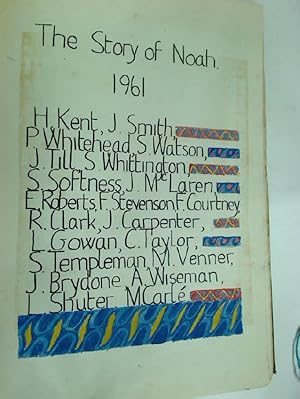 The Story of Noah.
1961
H. Kent, J. Smith,
P. Whitehead, S. Watson,
J. Till, S. Whittington,
S. Softness, J. McLaren,
E. Roberts, F. Stevenson F. Courtney
R. Clark, J. Carpenter,
L. Gowan, C. Taylor,
S. Templeman, M. Venner,
J. Brydone, A. Wiseman,
L. Shuter, M Carlé